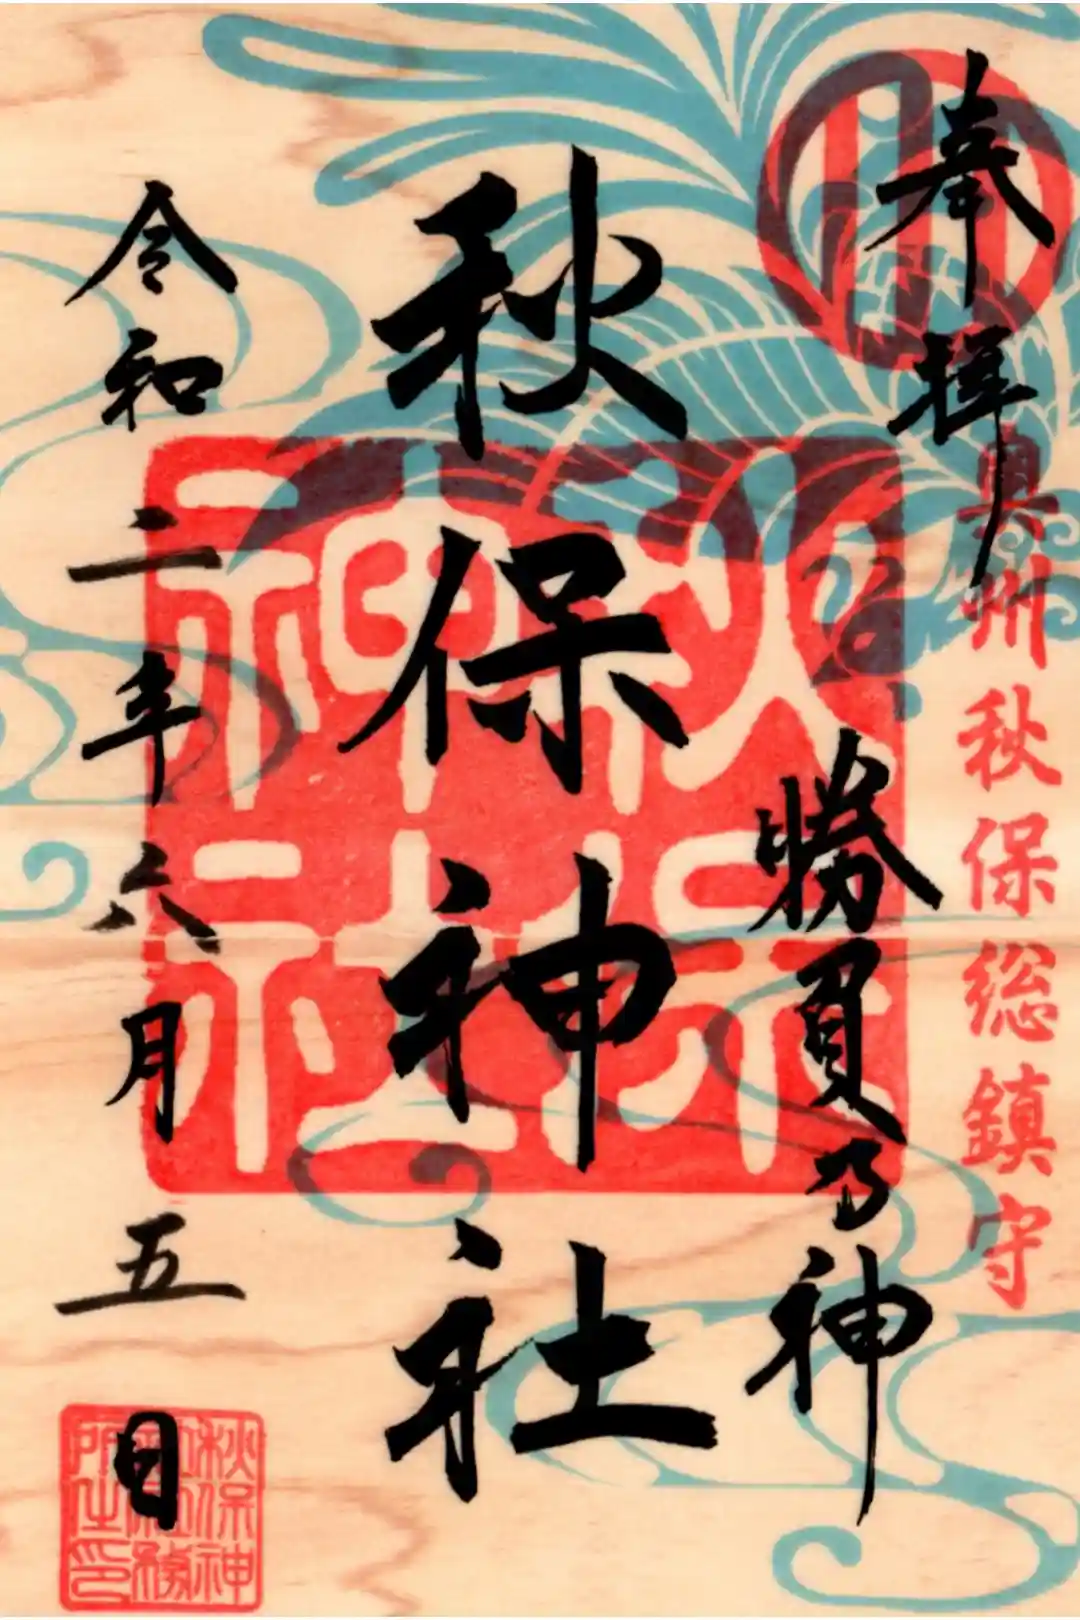 奉拝
奥州秋保総鎮守
勝負乃神
秋保神社
令和二年六月五日
秋保神社
秋保神社務所之印